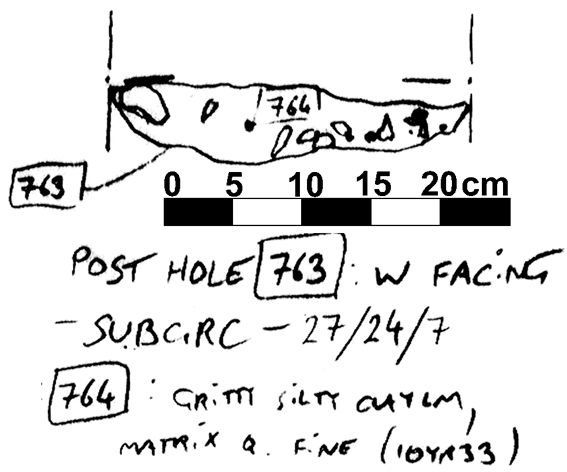 764
763
0 5 10 15 20 cm
POST HOLE 763 : W FACING
- SUBCIRC - 27/24/7
764 : GRITTY SILTY CLAYLM,
MATRIX Q. FINE (10YR33)